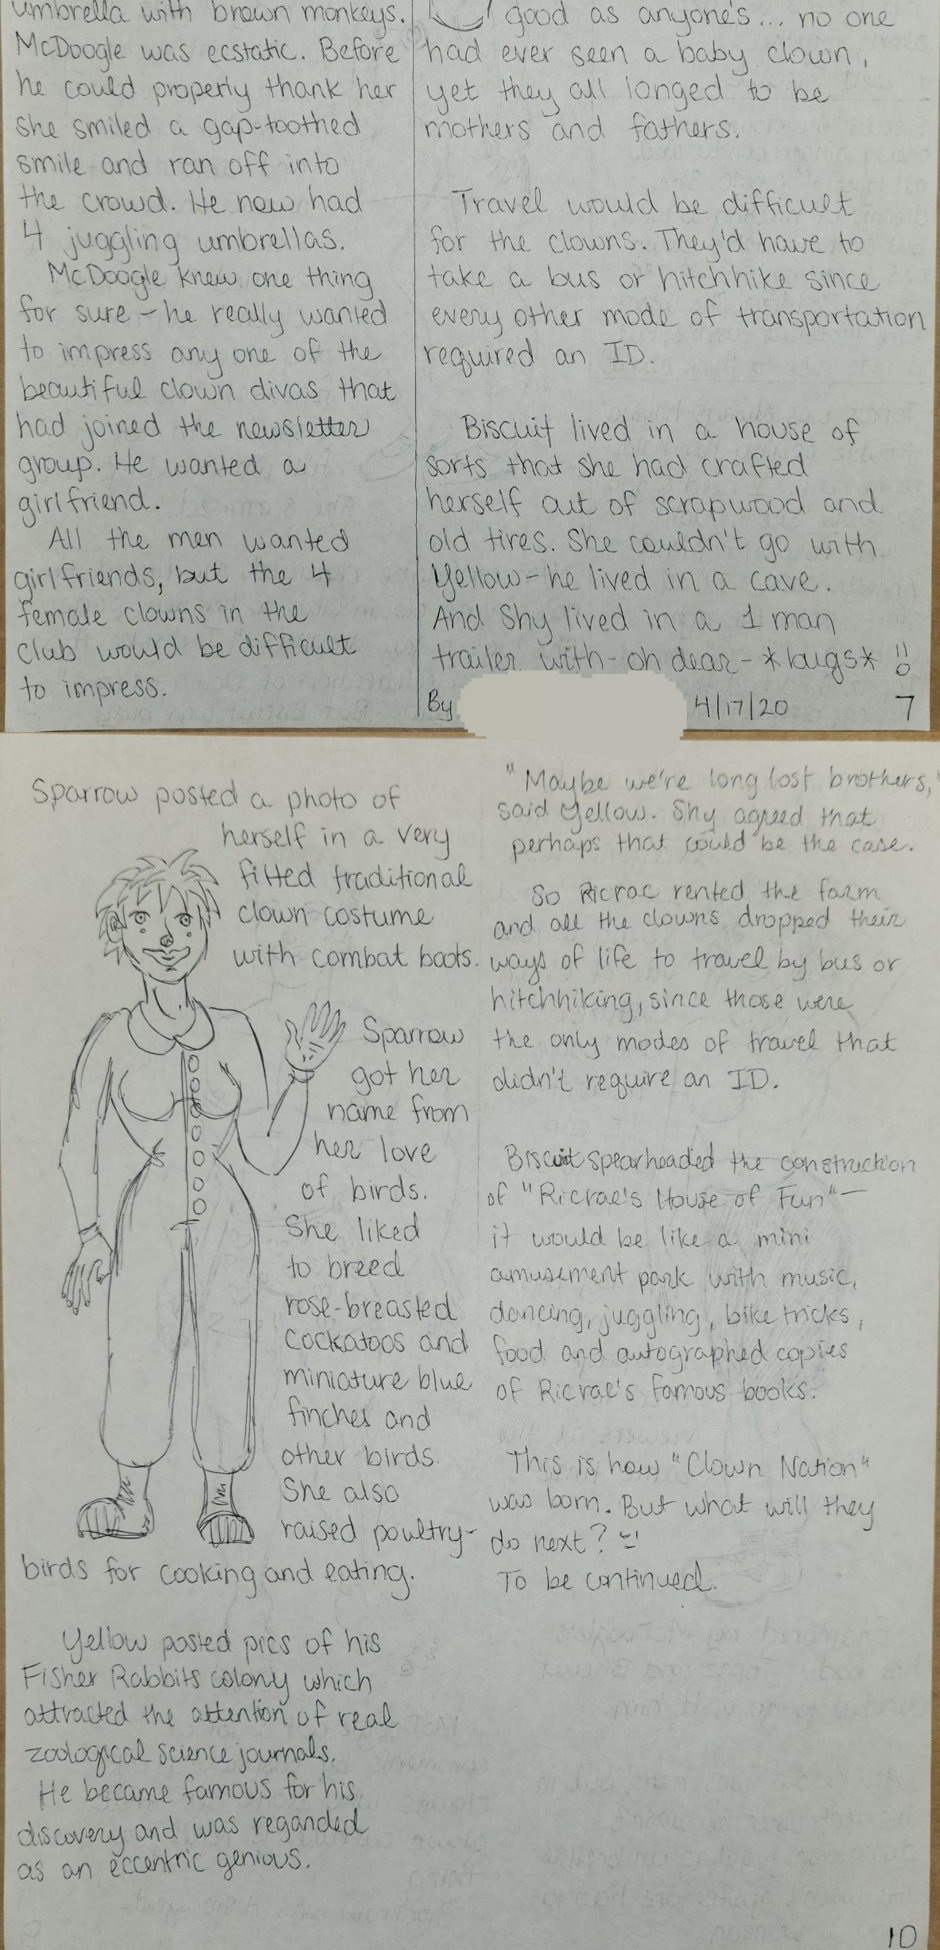 umbrella with brown monkeys.
McDoogle was ecstatic. Before
he could properly thank her
she smiled a gap-toothed
smile and ran off into
the crowd. He now had
4 juggling umbrellas.
McDoogle knew one thing
for sure - he really wanted
to impress any one of the
beautiful clown divas that
had joined the newsletter
group. He wanted a
girlfriend.
All the men wanted
girlfriends, but the 4
female clowns in the
club would be difficult
to impress.
good as anyone's... no one
had ever seen a baby clown,
yet they all longed to be
mothers and fathers.
Travel would be difficult
for the clowns. They'd have to
take a bus or hitchhike since
every other mode of transportation
required an ID.
Biscuit lived in a house of
sorts that she had crafted
herself out of scrapwood and
old tires. She couldn't go with
Yellow - he lived in a cave.
And Shy lived in a 1 man
trailer with - oh dear - *laugs* !!
By 4/17/20 7
Sparrow posted a photo of
herself in a very
fitted traditional
clown costume
with combat boots.
Sparrow
got her
name from
her love
of birds.
She liked
to breed
rose-breasted
Cockatoos and
miniature blue
finches and
other birds.
She also
raised poultry-
birds for cooking and eating.
Yellow posted pics of his
Fisher Rabbits colony which
attracted the attention of real
zoological science journals.
He became famous for his
discovery and was reganded
as an eccentric genious.
"Maybe we're long lost brothers,"
said Yellow. Shy agreed that
perhaps that could be the case.
So Ricrac rented the farm
and all the clowns dropped their
ways of life to travel by bus or
hitchhiking, since those were
the only modes of travel that
didn't require an ID.
Biscuit spearheaded the construction
of "Ricrae's House of Fun" -
it would be like a mini
amusement park with music,
dancing, juggling, bike tricks,
food and autographed copies
of Ricrae's famous books.
This is how "Clown Nation"
was born. But what will they
do next?
To be continued.
10